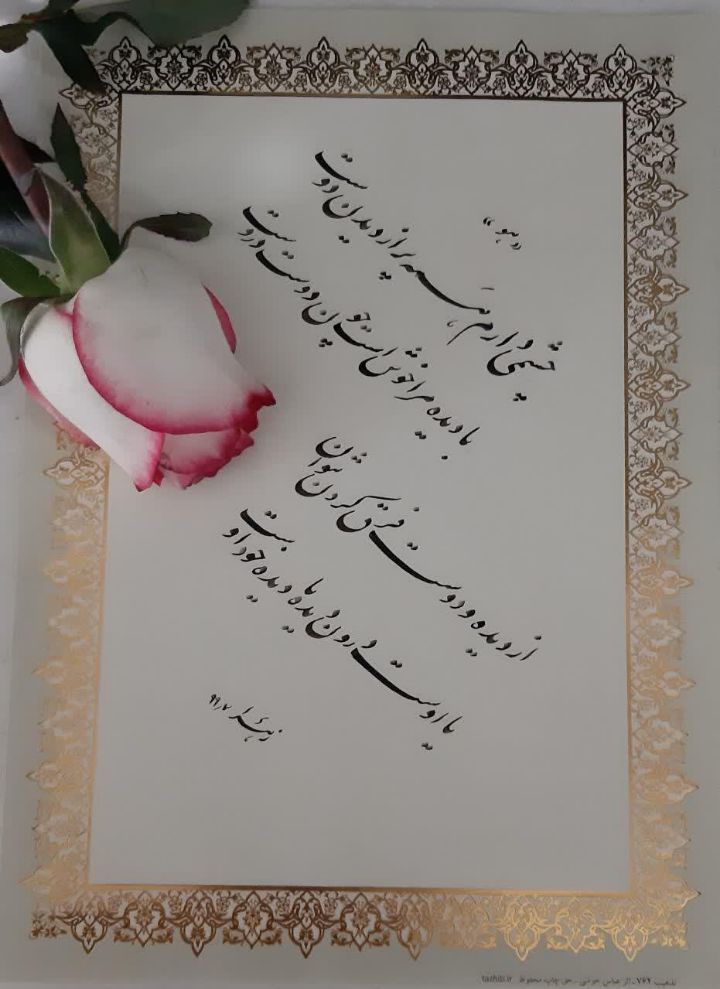 «هو»
چشمی دارم همه پر از دیدن دوست
با دیده مرا خوش است چون دوست دروست
از دیده و دوست فرق کردن نتوان
یا اوست درون دیده یا دیده خود اوست
زهرا ۹۹/۷
تذهیب ۷۶۲ - اثر عباس مؤمنی - حق چاپ محفوظ tazhib.ir